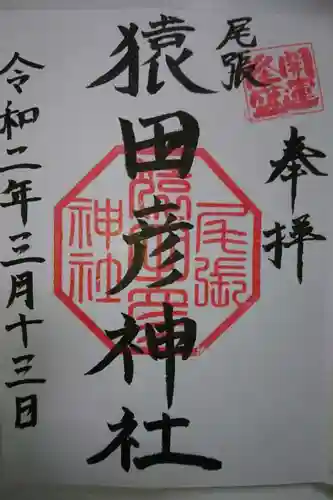 奉拝
尾張
猿田彦神社
令和二年三月十三日
尾張
猿田彦
神社